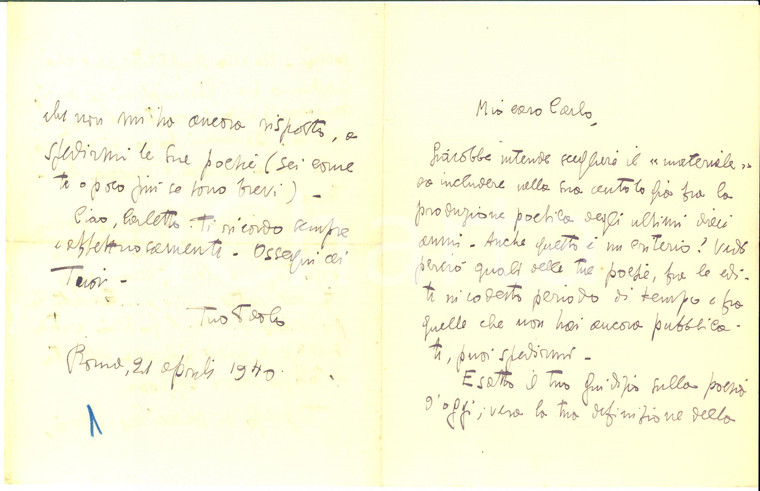 Mio caro Carlo,
Giacobbe intende scegliere il «materiale»
da includere nella sua antologia fra la
produzione poetica degli ultimi dieci
anni. Anche questo è un criterio! Vedi
perciò quali delle tue poesie, fra le edi-
te in codesto periodo di tempo e fra
quelle che non hai ancora pubblica-
te, puoi spedirmi.
Esatto il tuo giudizio sulla poesia
d'oggi; vera la tua definizione della
che non mi ha ancora risposto, a
spedirmi le sue poesie (sei come
te o poco più se sono brevi) -
Ciao, Carletto. Ti ricordo sempre
affettuosamente - Ossequi ai
Tuoi -
Tuo
Roma, 21 aprile 1940.
1